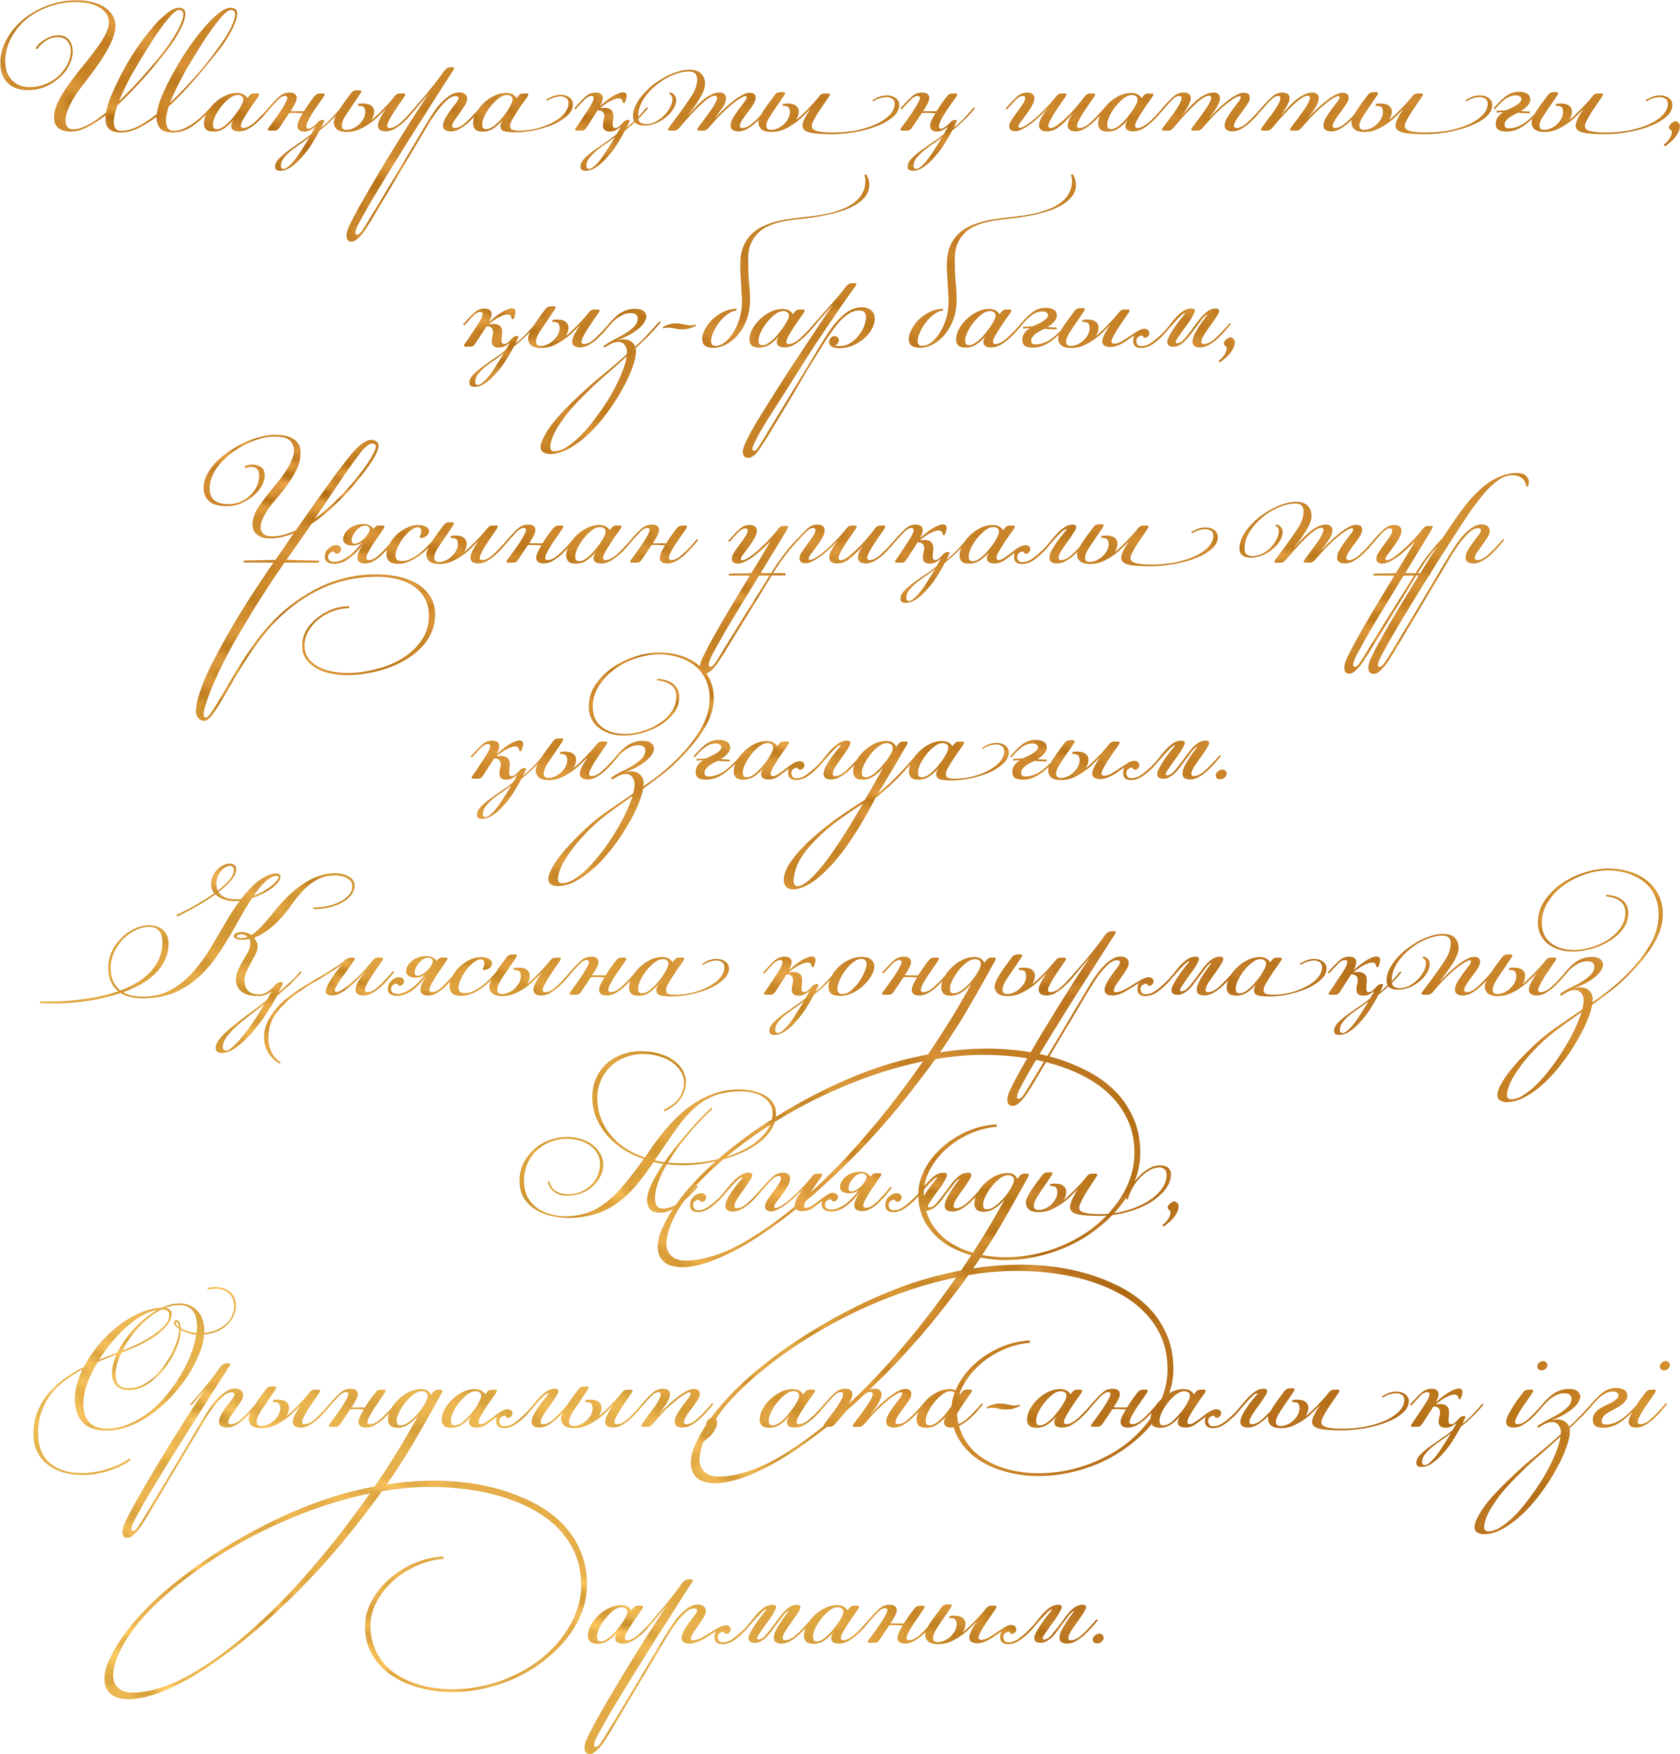 Шаңырақтың шаттығы,
қыз-бар бағым,
Ұясынан ұшқалы тұр
қызғалдағым.
Қиясына қондырмақпыз
Алиямды,
Орындалып, ата-аналық ізгі
арманым.